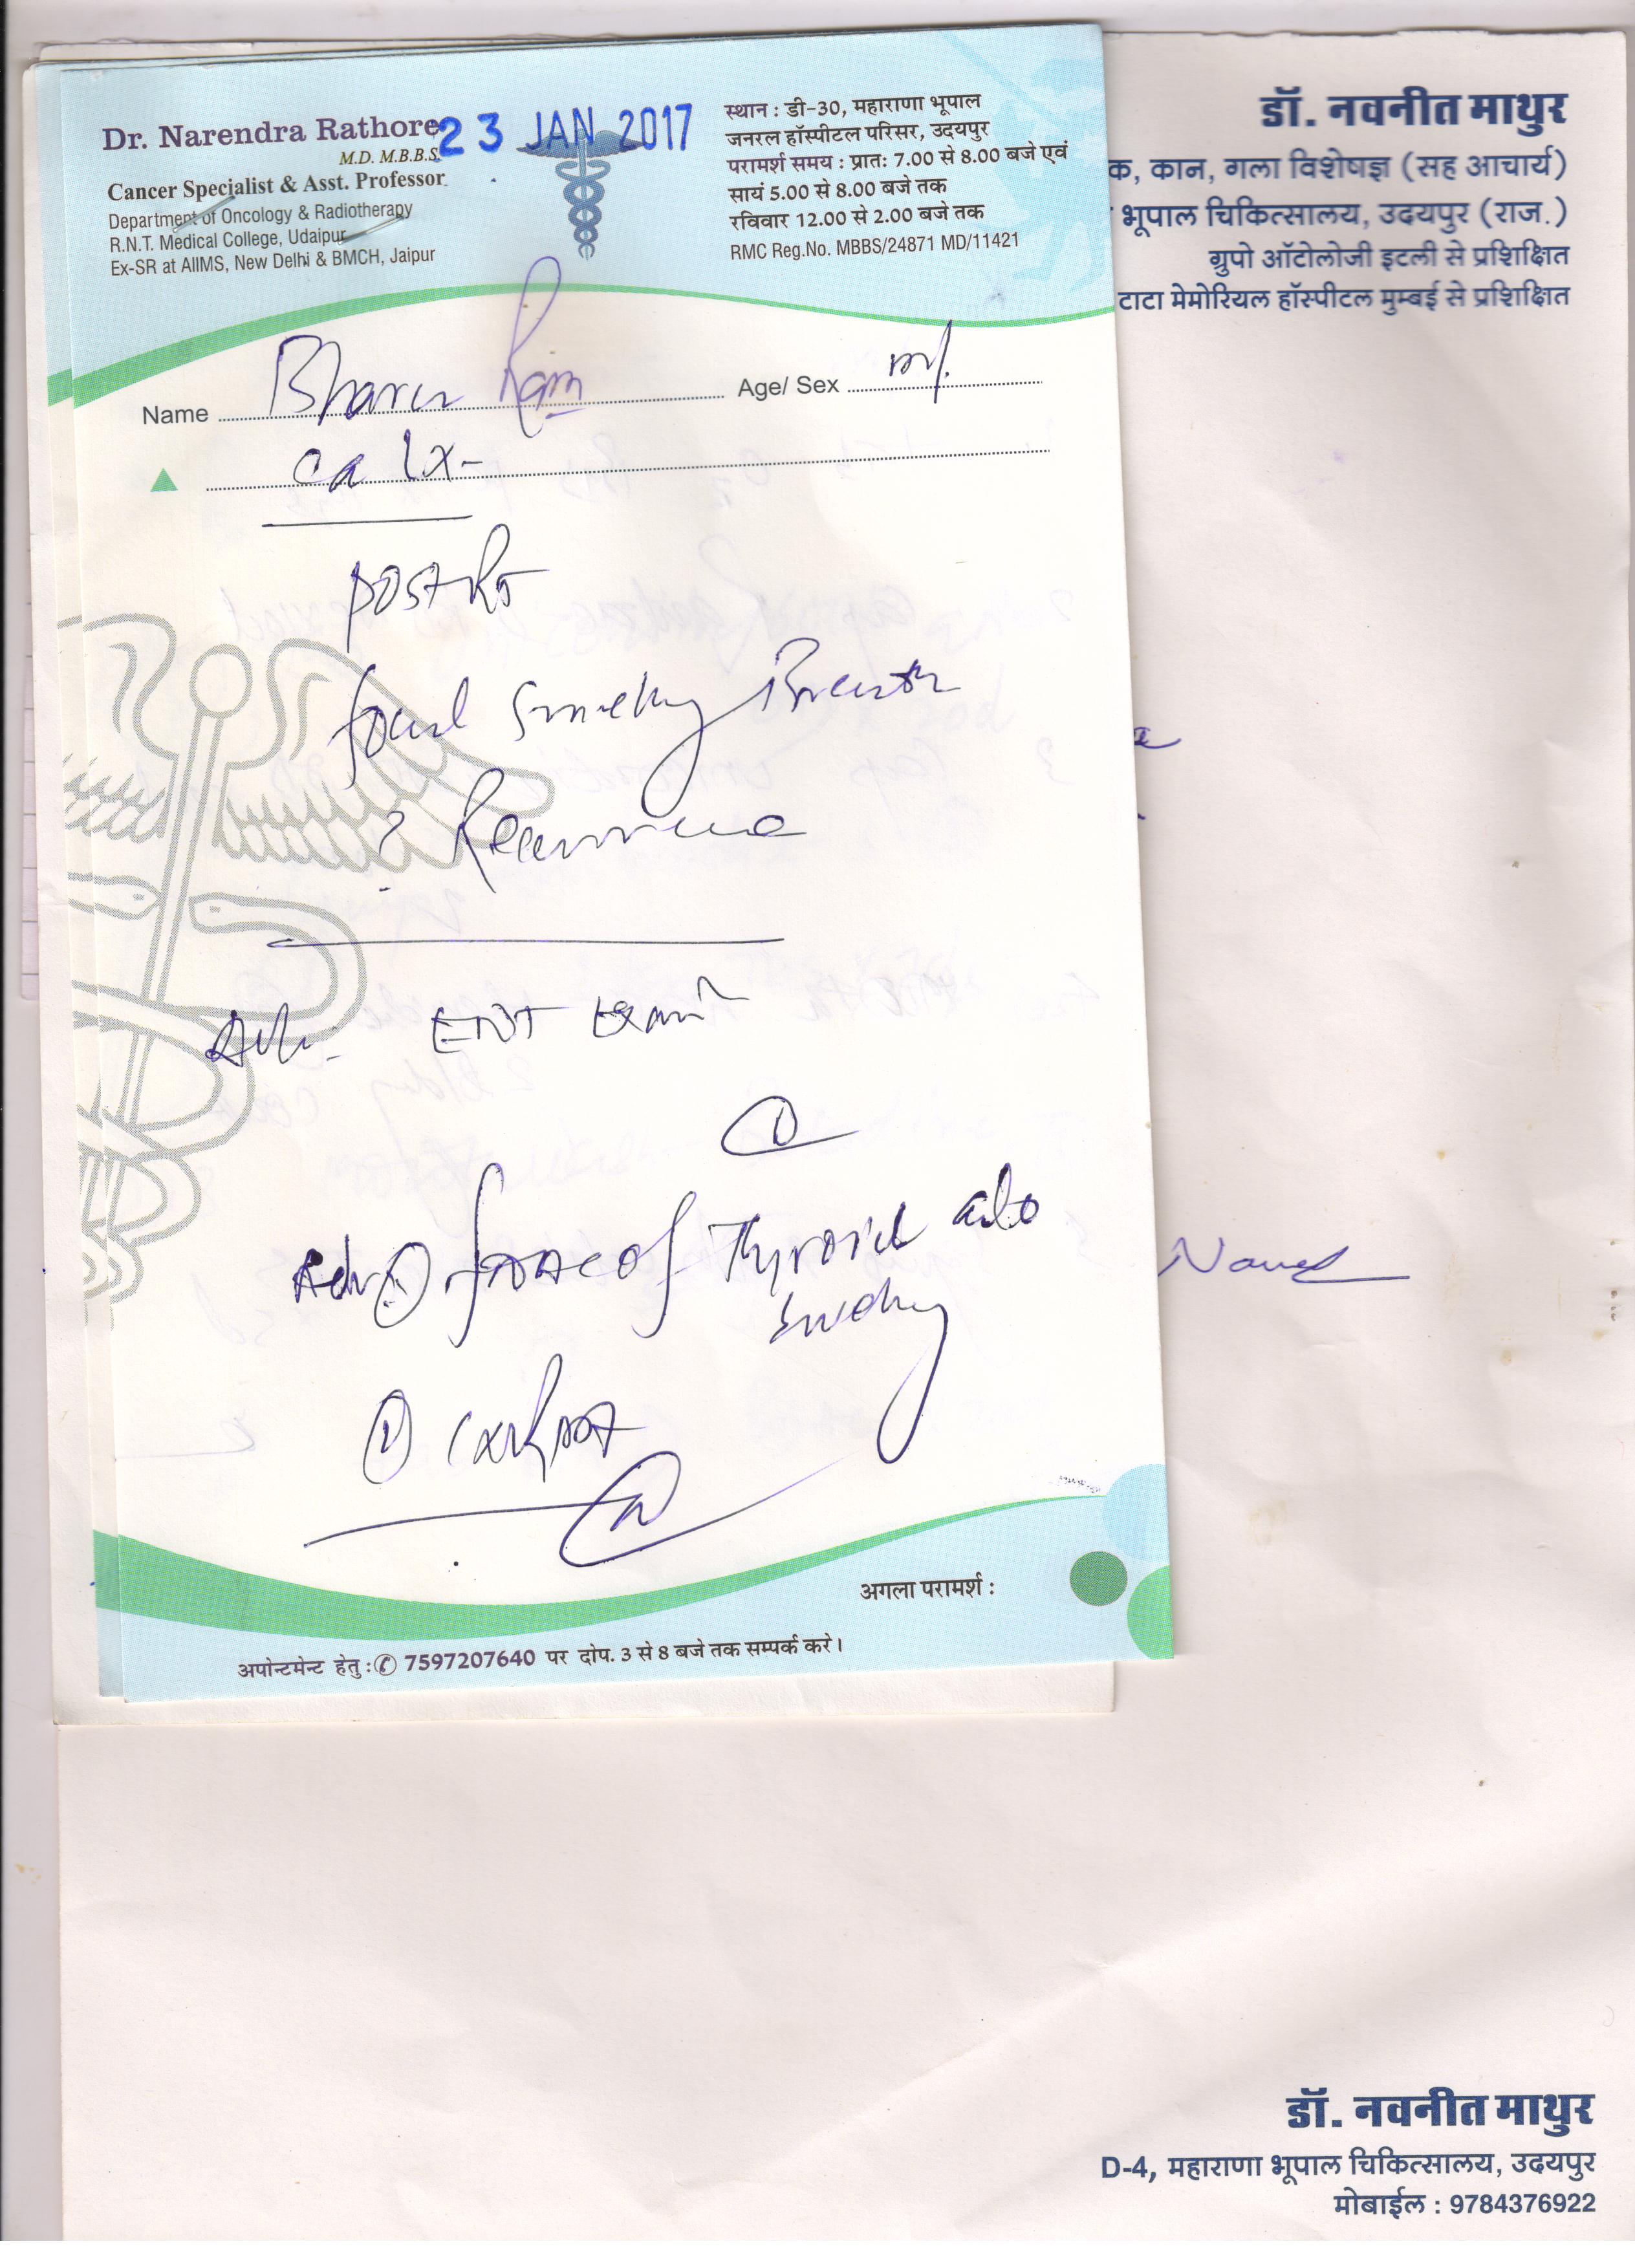 Dr. Narendra Rathore
M.D. M.B.B.S.
23 JAN 2017
Cancer Specialist & Asst. Professor
Department of Oncology & Radiotherapy
R.N.T. Medical College, Udaipur
Ex-SR at AIIMS, New Delhi & BMCH, Jaipur
स्थान : डी-30, महाराणा भूपाल
जनरल हॉस्पीटल परिसर, उदयपुर
परामर्श समय : प्रातः 7.00 से 8.00 बजे एवं
सायं 5.00 से 8.00 बजे तक
रविवार 12.00 से 2.00 बजे तक
RMC Reg.No. MBBS/24871 MD/11421
डॉ. नवनीत माथुर
क, कान, गला विशेषज्ञ (सह आचार्य)
भूपाल चिकित्सालय, उदयपुर (राज.)
ग्रुपो ऑटोलोजी इटली से प्रशिक्षित
टाटा मेमोरियल हॉस्पीटल मुम्बई से प्रशिक्षित
Name Ram Age/ Sex M
Ca Lx
Post RT
foul smelling Breath
?
ENT Exam
Adv of Thyroid also
swelling
अगला परामर्श :
अपोन्टमेन्ट हेतु : 7597207640 पर दोप. 3 से 8 बजे तक सम्पर्क करे।
डॉ. नवनीत माथुर
D-4, महाराणा भूपाल चिकित्सालय, उदयपुर
मोबाईल : 9784376922